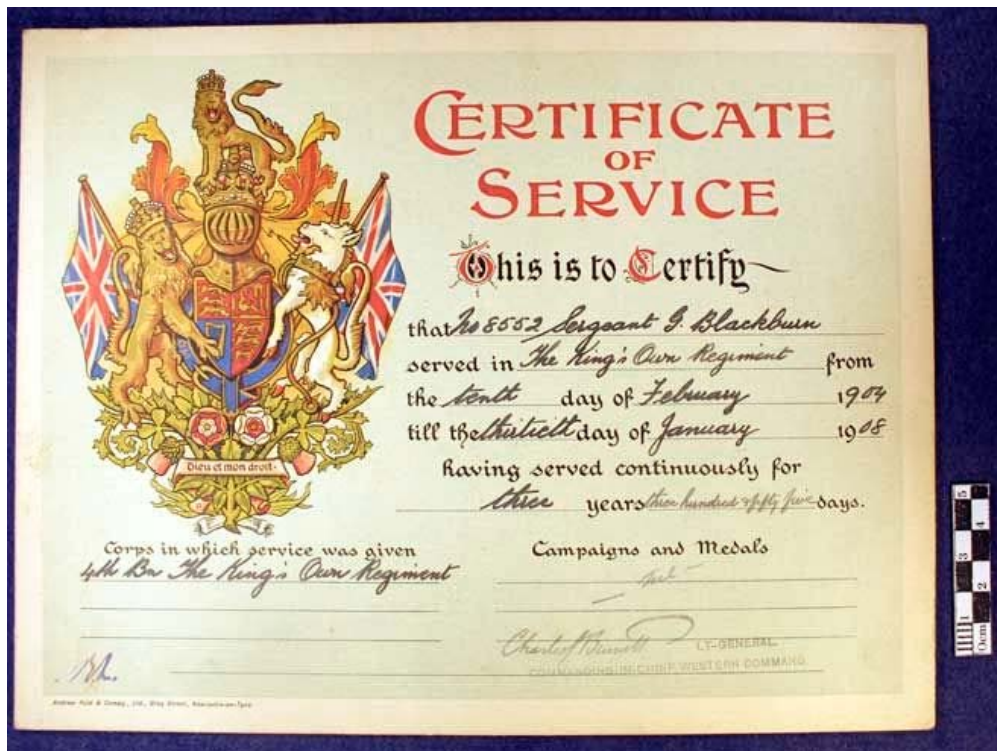 CERTIFICATE
OF
SERVICE
This is to Certify
that No 8552 Sergeant G. Blackburn
served in The King's Own Regiment from
the tenth day of February 1904
till the thirtieth day of January 1908
having served continuously for
three years three hundred & fifty five days.
Dieu et mon droit
Corps in which service was given
4th Bn The King's Own Regiment
Campaigns and Medals
LT-GENERAL.
COMMANDING-IN-CHIEF, WESTERN COMMAND.
Andrew Reid & Compy., Ltd., Grey Street, Newcastle-on-Tyne
0cm 1 2 3 4 5